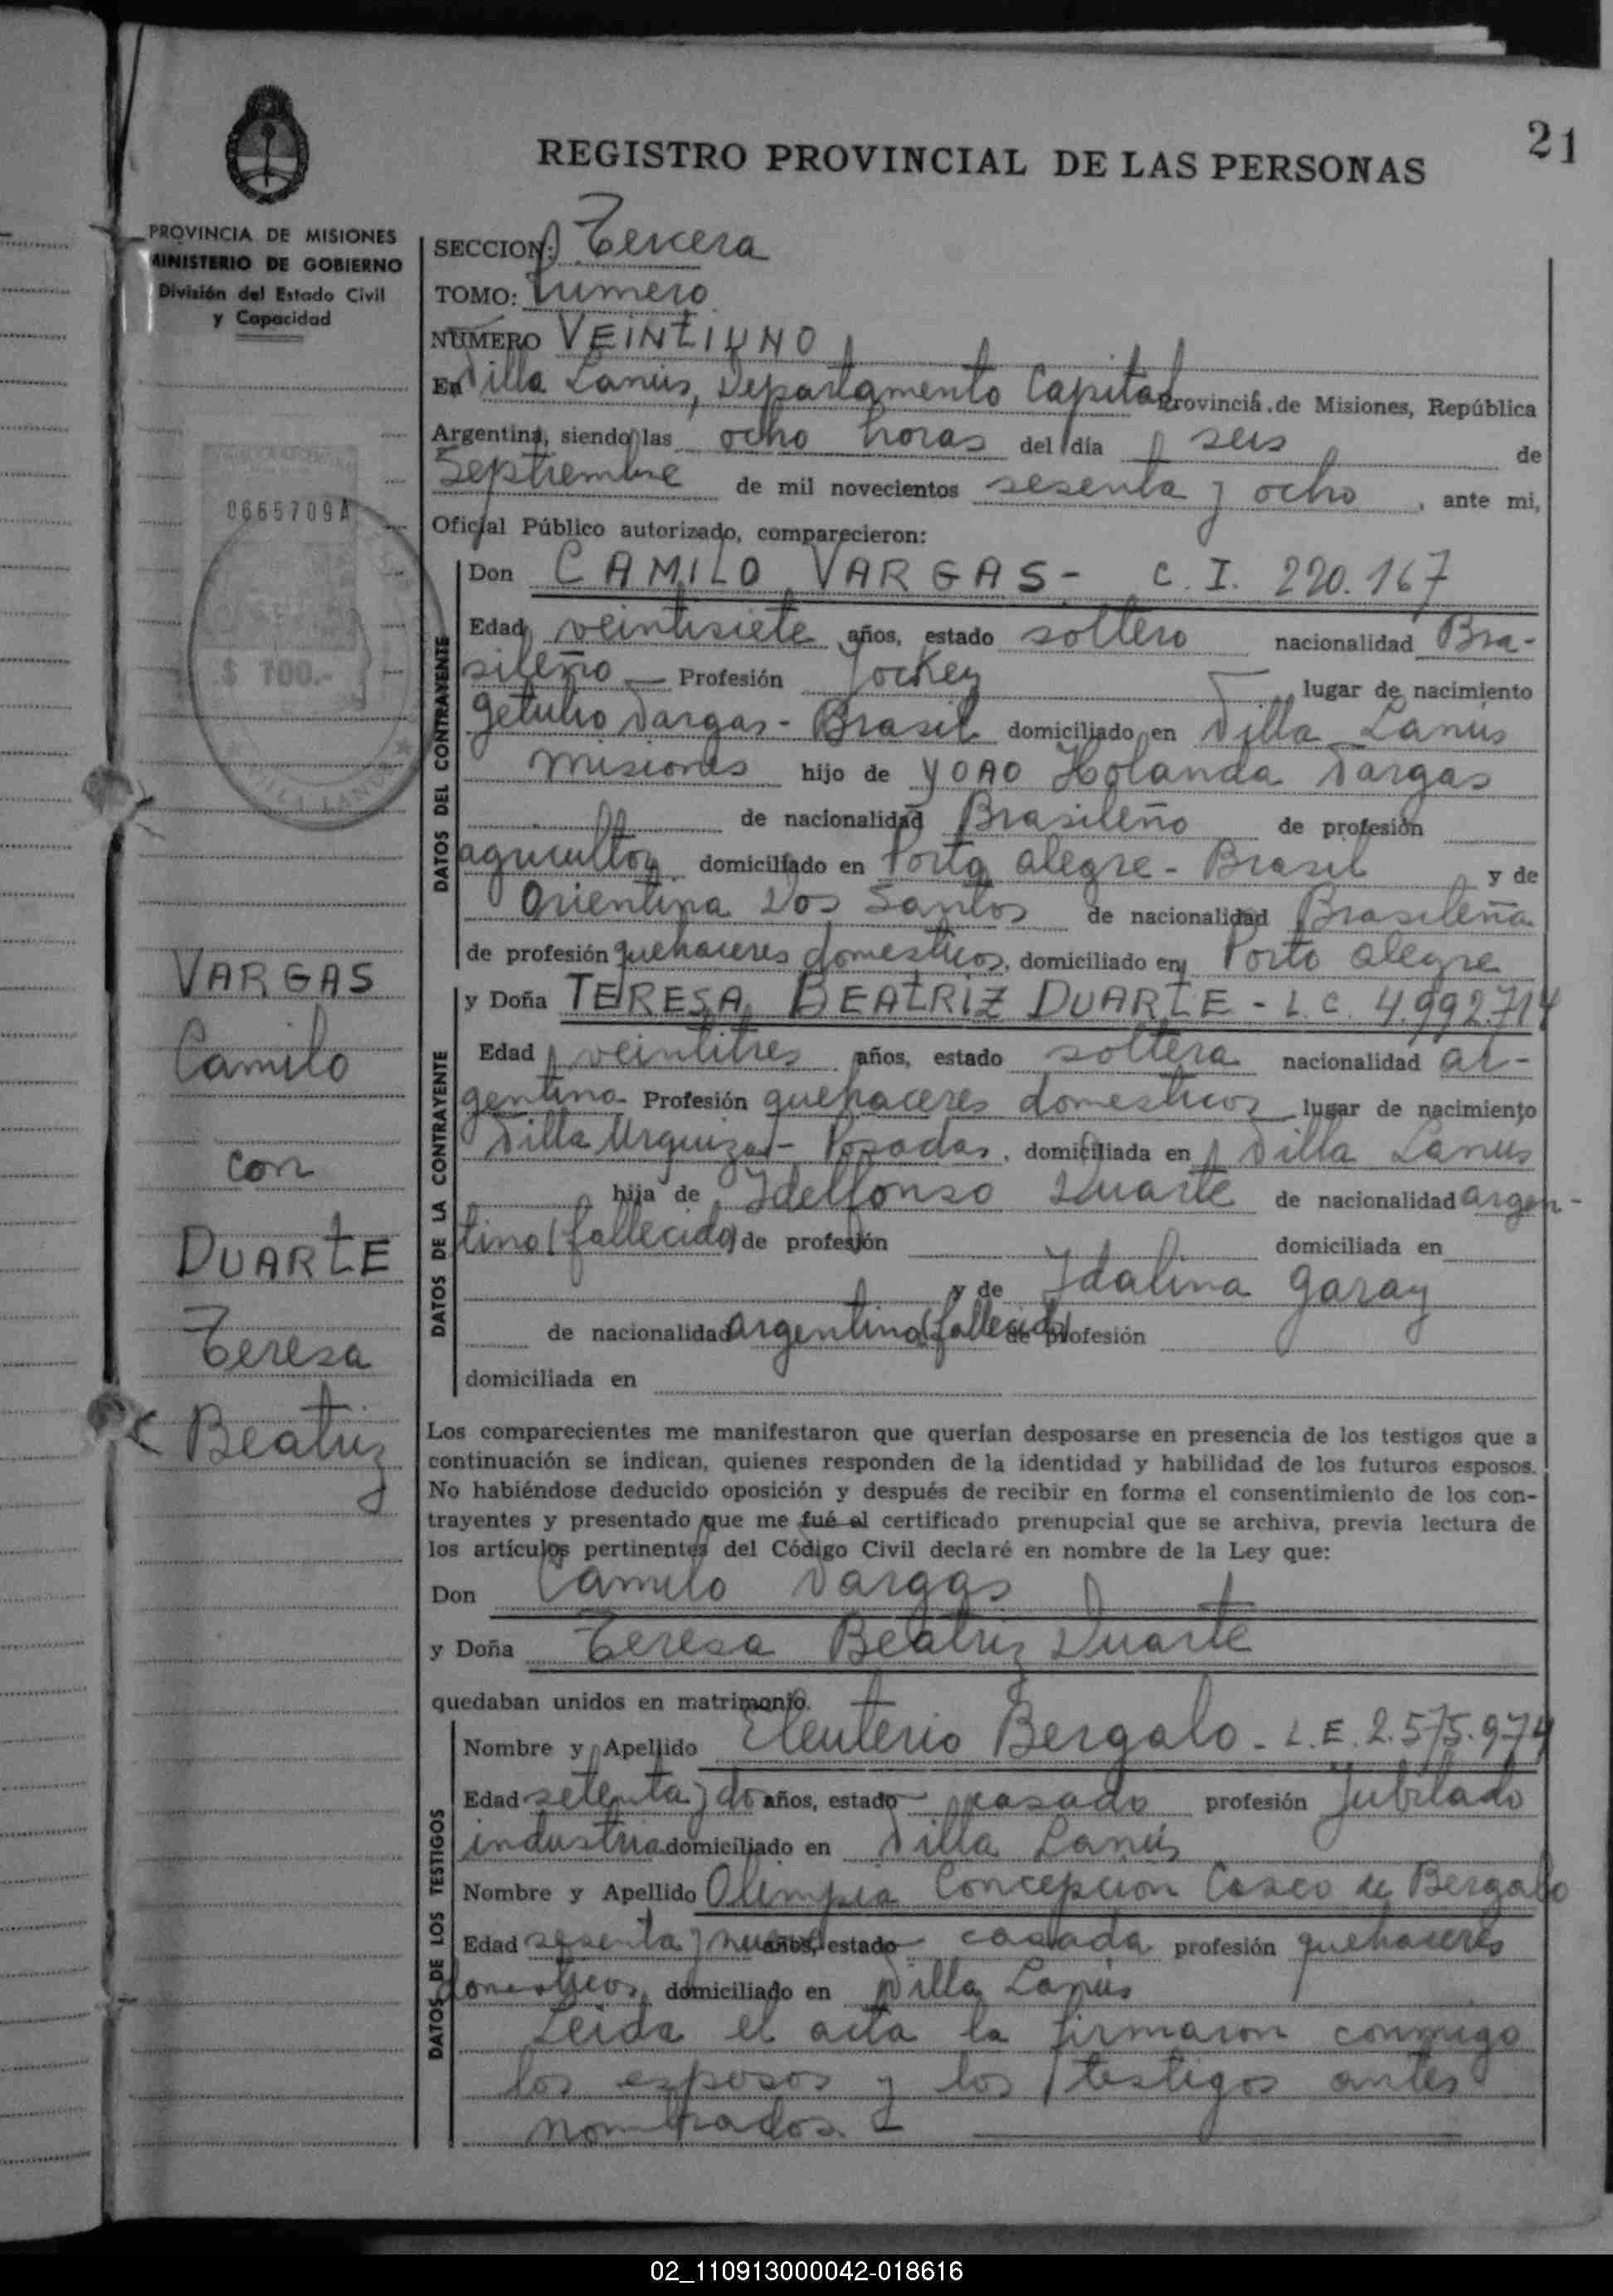 21
REGISTRO PROVINCIAL DE LAS PERSONAS
PROVINCIA DE MISIONES
MINISTERIO DE GOBIERNO
División del Estado Civil
y Capacidad
0665709A
$ 100.-
VILLA LANUS
VARGAS
Camilo
con
DUARTE
Teresa
Beatriz
SECCION: Tercera
TOMO: Primero
NUMERO VEINTIUNO
En Villa Lanús, Departamento Capital Provincia de Misiones, República
Argentina, siendo las ocho horas del día seis de
Septiembre de mil novecientos sesenta y ocho, ante mi,
Oficial Público autorizado, comparecieron:
DATOS DEL CONTRAYENTE
Don CAMILO VARGAS - C. I. 220.167
Edad veintisiete años, estado soltero nacionalidad Bra-
sileño — Profesión Jockey lugar de nacimiento
Getulio Vargas - Brasil domiciliado en Villa Lanús
Misiones hijo de YOAO Holanda Vargas
de nacionalidad Brasileño de profesión
agricultor domiciliado en Porto Alegre - Brasil y de
Orientina Dos Santos de nacionalidad Brasileña
de profesión quehaceres domesticos, domiciliado en Porto Alegre
DATOS DE LA CONTRAYENTE
y Doña TERESA BEATRIZ DUARTE - L.C. 4.992.714
Edad veintitres años, estado soltera nacionalidad ar-
gentina Profesión quehaceres domesticos lugar de nacimiento
Villa Urquiza - Posadas, domiciliada en Villa Lanus
hija de Idelfonso Duarte de nacionalidad argen-
tino (fallecido) de profesión domiciliada en
y de Idalina Garay
de nacionalidad argentina (fallecida) de profesión
domiciliada en
Los comparecientes me manifestaron que querían desposarse en presencia de los testigos que a
continuación se indican, quienes responden de la identidad y habilidad de los futuros esposos.
No habiéndose deducido oposición y después de recibir en forma el consentimiento de los con-
trayentes y presentado que me fué el certificado prenupcial que se archiva, previa lectura de
los artículos pertinentes del Código Civil declaré en nombre de la Ley que:
Don Camilo Vargas
y Doña Teresa Beatriz Duarte
quedaban unidos en matrimonio.
DATOS DE LOS TESTIGOS
Nombre y Apellido Eleuterio Bergalo - L.E. 2.575.974
Edad setenta y dos años, estado casado profesión Jubilado
industria domiciliado en Villa Lanús
Nombre y Apellido Olimpia Concepcion Casco de Bergalo
Edad sesenta y nueve años, estado casada profesión quehaceres
domesticos, domiciliado en Villa Lanús
Leida el acta la firmaron conmigo
los esposos y los testigos antes
nombrados.
02_110913000042-018616